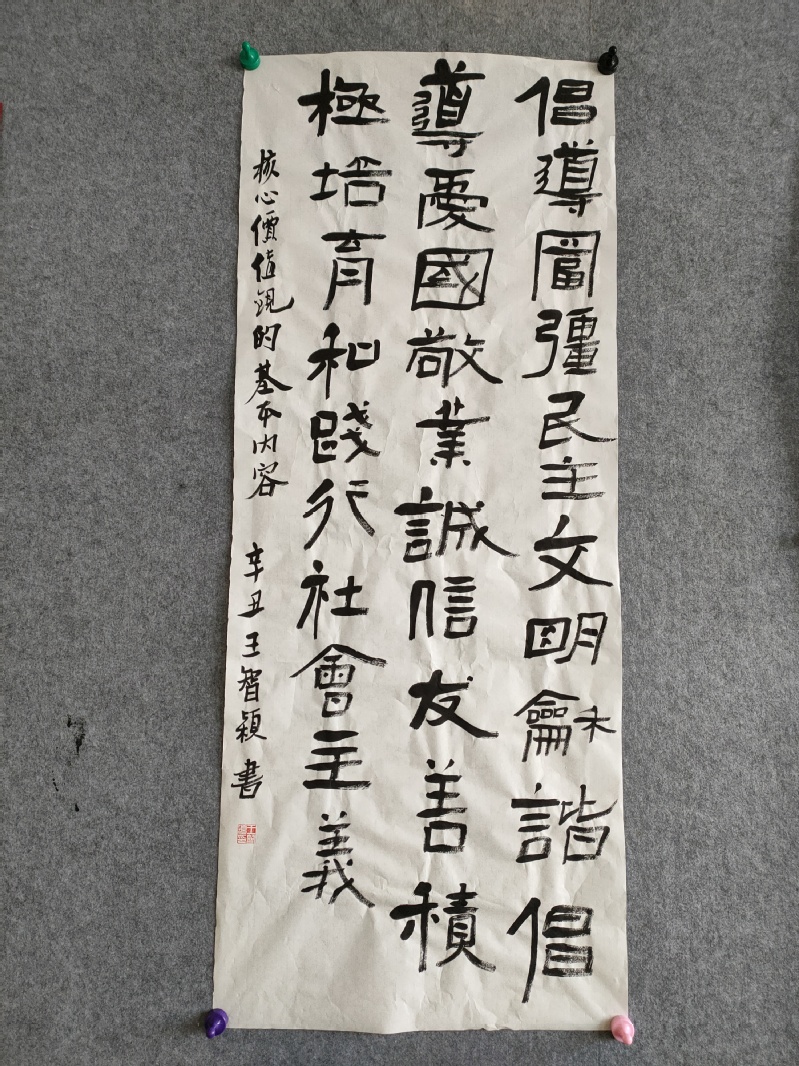 倡導富彊民主文明龢諧倡
導愛國敬業誠信友善積
極培育和踐行社會主義
核心價值觀的基本内容 辛丑王智穎書